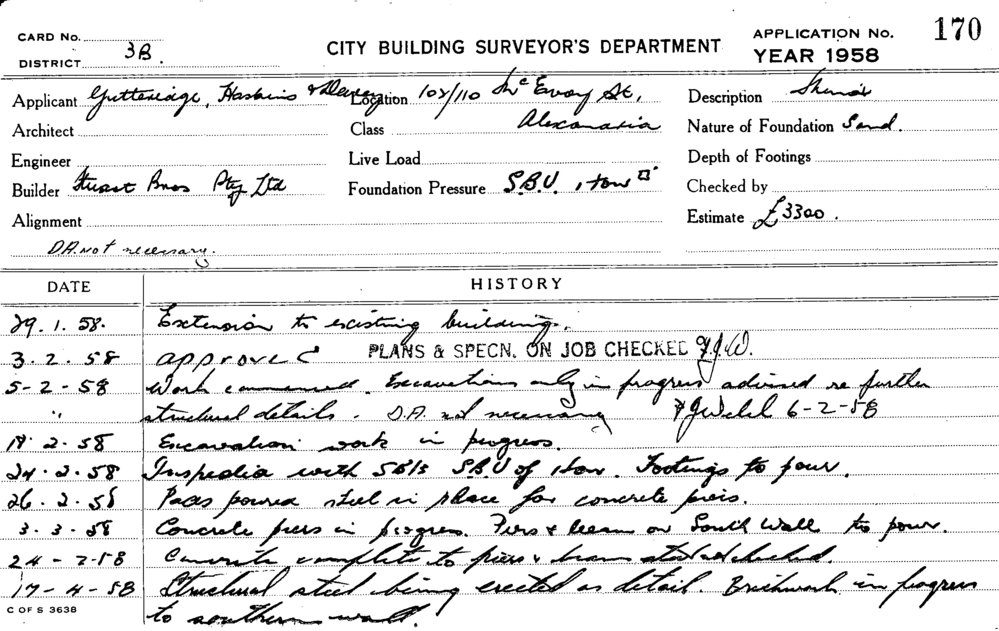 CARD No.
DISTRICT 3B.
CITY BUILDING SURVEYOR'S DEPARTMENT
APPLICATION No. 170
YEAR 1958
Applicant Gutteridge, Haskins & Davey Location 102/110 McEvoy St,
Description
Architect
Class Alexandria
Nature of Foundation Sand.
Engineer
Live Load
Depth of Footings
Builder Stuart Bros Pty Ltd
Foundation Pressure S.B.U. 1 ton □'
Checked by
Alignment
Estimate £3300.
D.A. not necessary.
DATE HISTORY
29.1.58. Extension to existing building.
3.2.58 approved PLANS & SPECN. ON JOB CHECKED
5-2-58 Work commenced. Excavations only in progress advised re further
" structural details. D.A. not necessary 6-2-58
2.58 Excavation work in progress.
24.2.58 Inspection with S.B.U of 1 ton. Footings to pour.
26.2.58 poured steel in place for concrete piers.
3.3.58 Concrete piers in progress. Piers & beam on South Wall to pour.
24-2-58 Concrete complete to piers & beam checked.
17-4-58 Structural steel being erected as detail. Brickwork in progress
to southern wall.
C OF S 3638